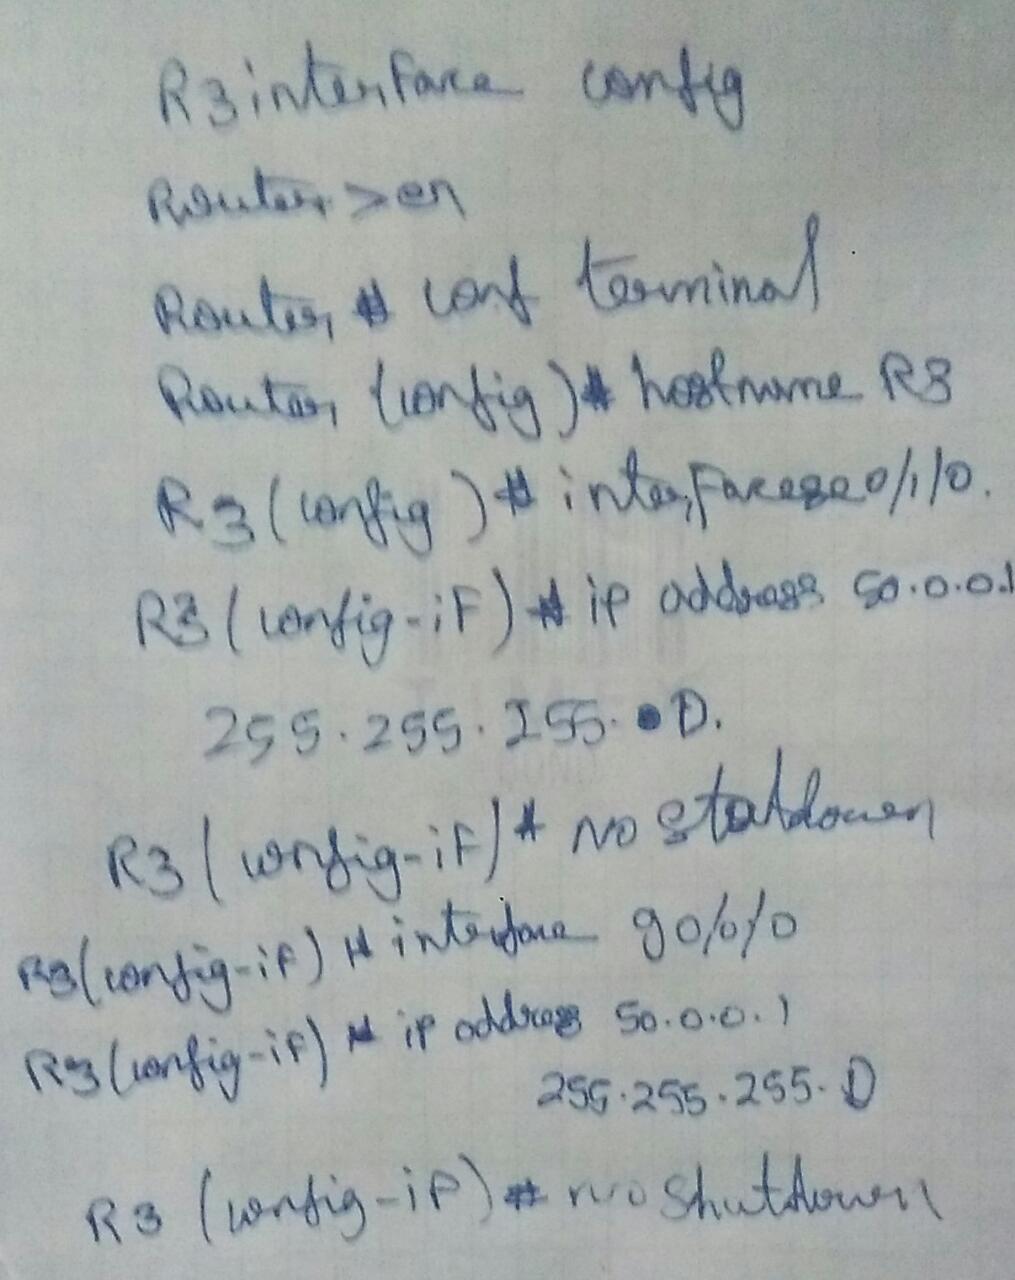 R3 interface config
Router >en
Router # conf terminal
Router (config)# hostname R3
R3 (config)# interface se0/1/0.
R3 (config-if)# ip address 50.0.0.1
255.255.255.0.
R3 (config-if)# no
R3(config-if) # interface g0/0/0
R3(config-if) # ip address 50.0.0.1
255.255.255.0
R3 (config-if)# no shutdown